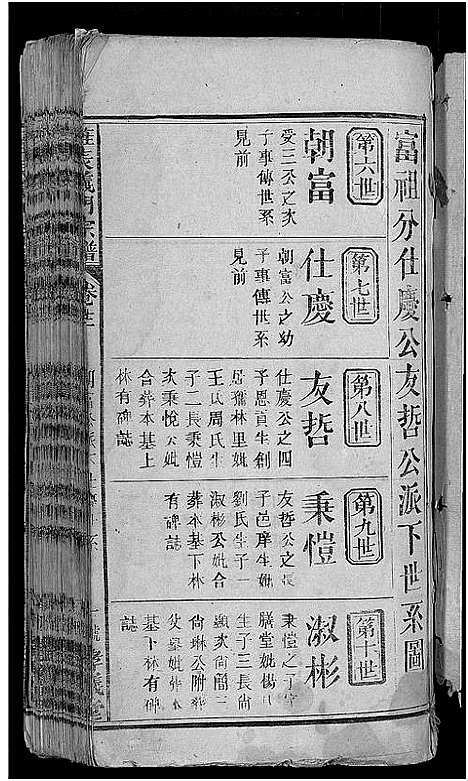 富祖分仕慶公友哲公派下世系圖
第六世
朝富
受三公之次
子事傳世系
見前
第七世
仕慶
朝富公之幼
子事傳世系
見前
第八世
友哲
仕慶公之四
子恩貢生創
居 林里妣
王氏周氏生
子二長秉愷
次秉悅公妣
合葬本基上
林有碑誌
第九世
秉愷
友哲公之長
子邑庠生妣
劉氏生子一
淑彬公妣合
葬本基下林
有碑誌
第十世
淑彬
秉愷之子字
膳堂妣楊氏
生子三長尚
顯次尚簡三
尚琳公附葬
父墓妣葬本
基下林有碑
誌
義門宗譜